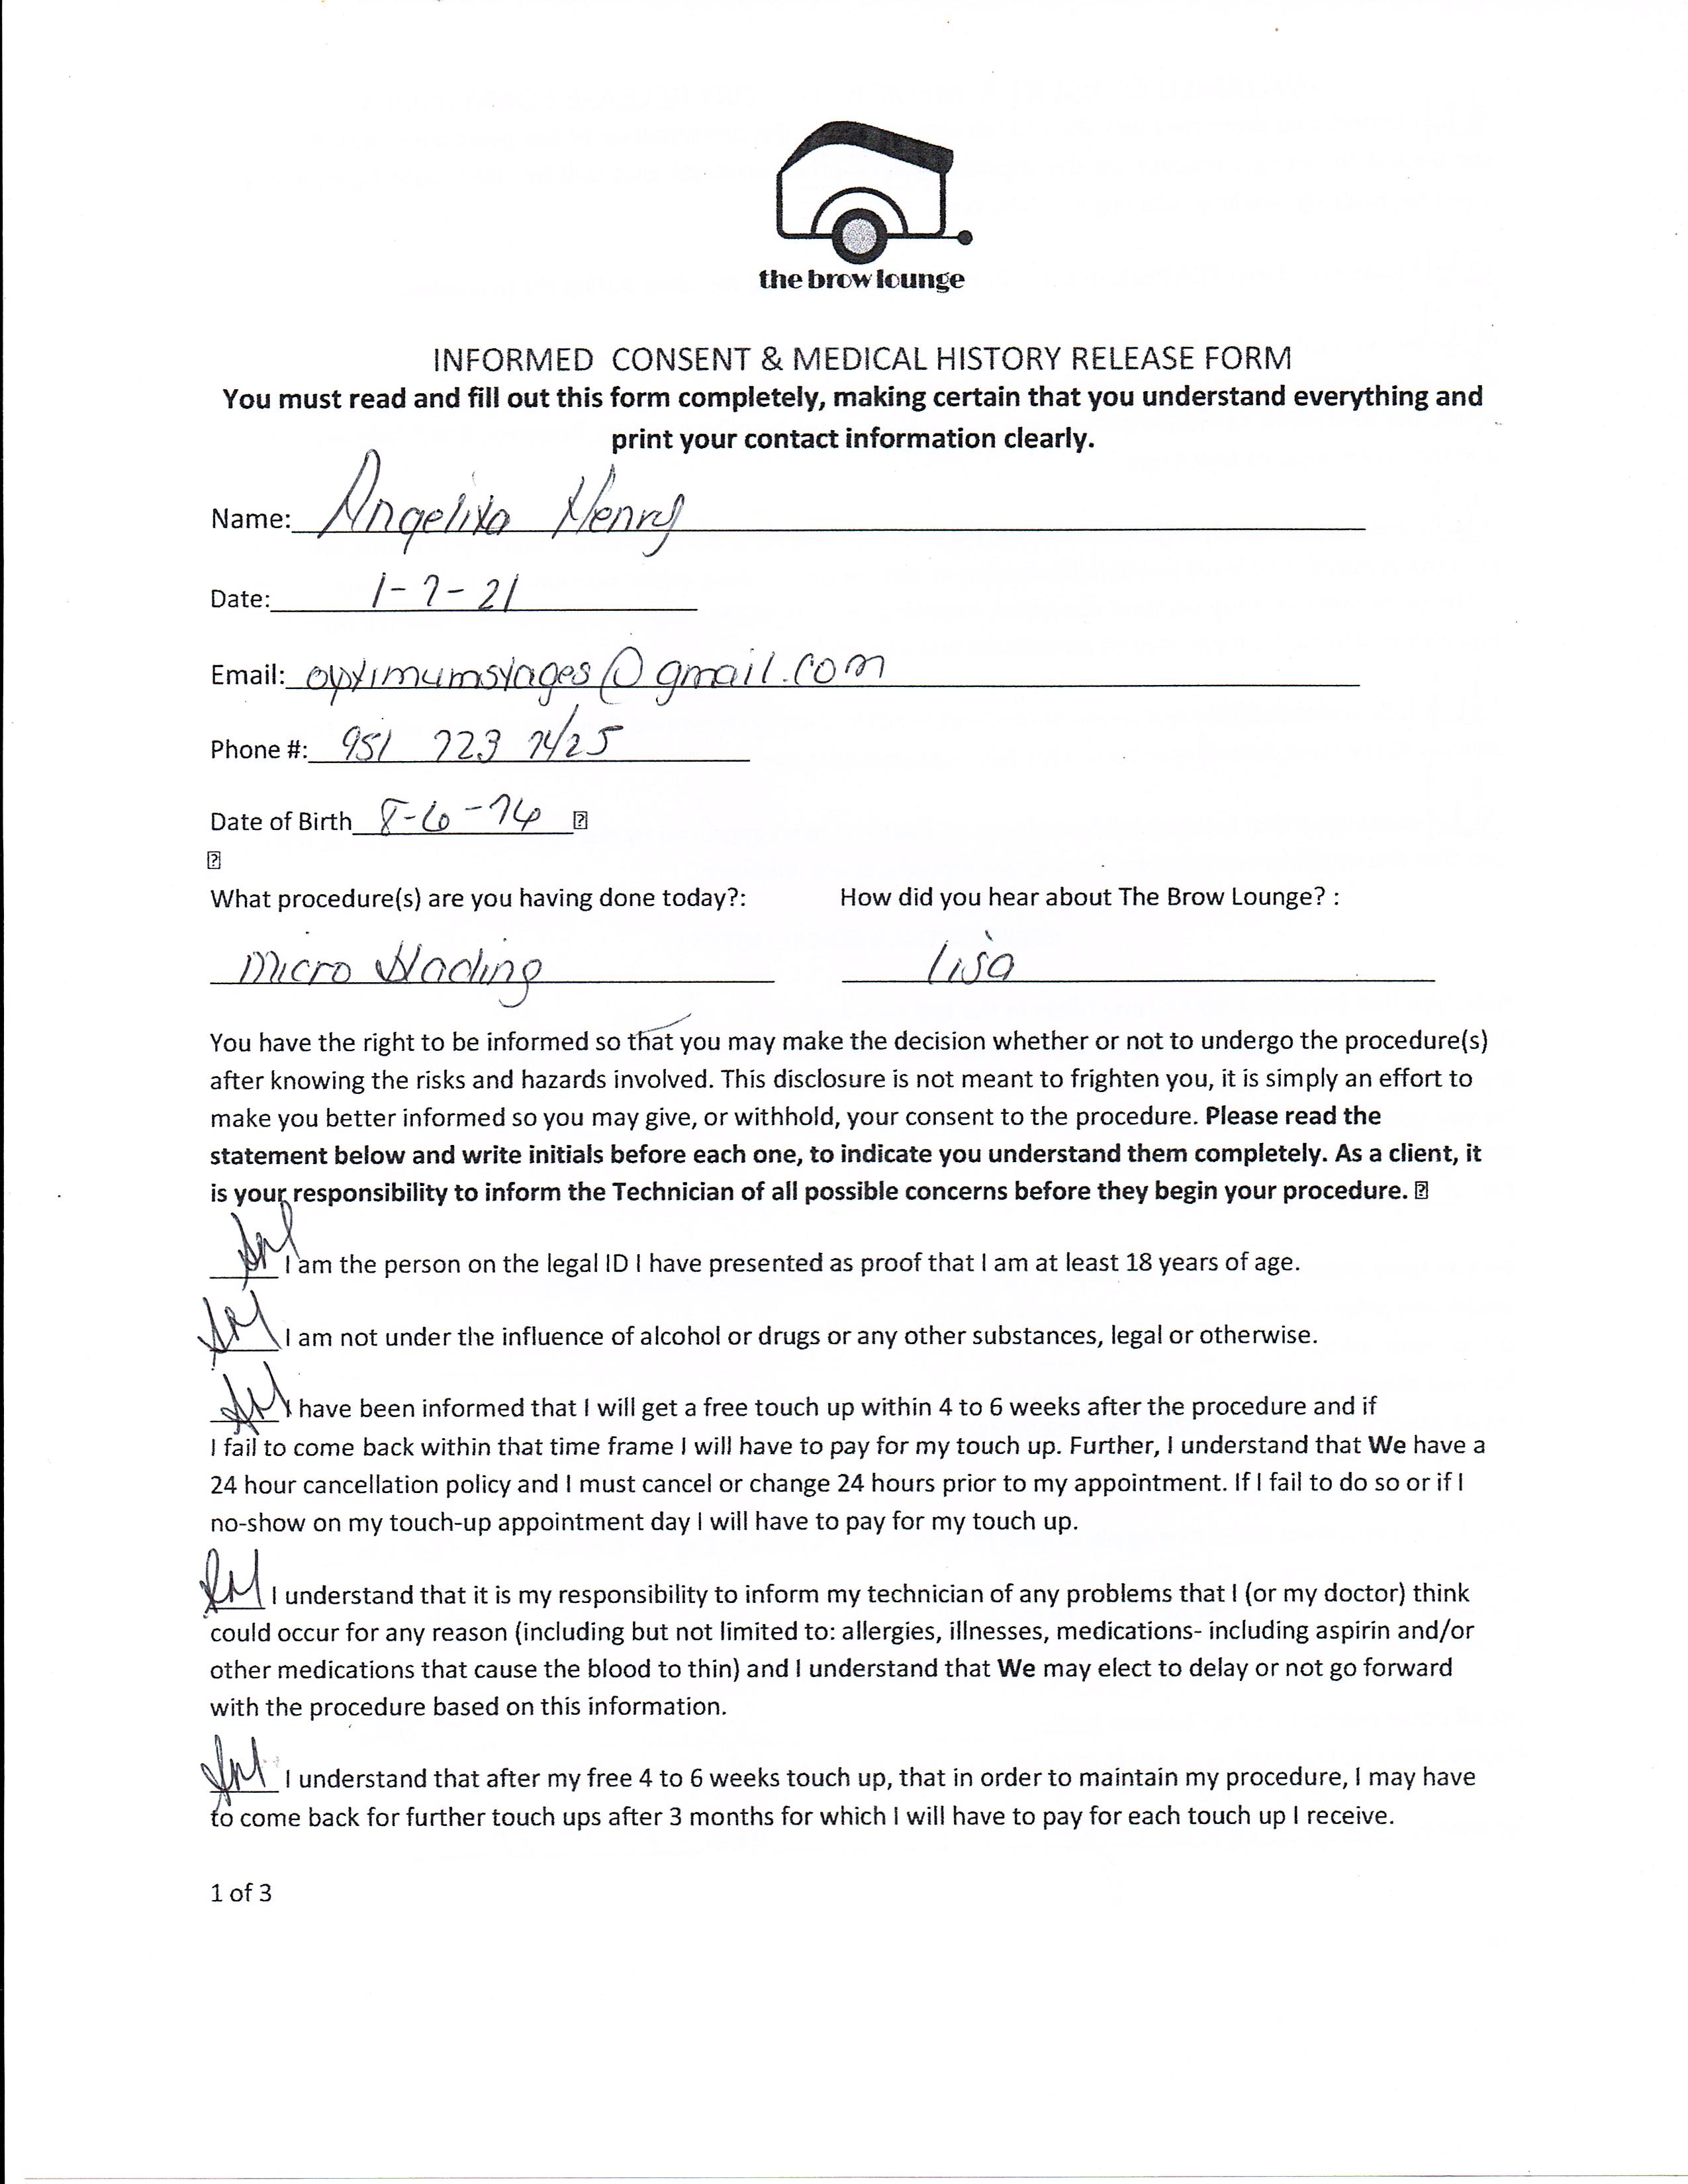 the brow lounge
INFORMED CONSENT & MEDICAL HISTORY RELEASE FORM
You must read and fill out this form completely, making certain that you understand everything and
print your contact information clearly.
Name: Angelika Henry
Date: 1-7-21
Email: optimumstages@gmail.com
Phone #: 951 723 7425
Date of Birth 8-6-74
What procedure(s) are you having done today?: How did you hear about The Brow Lounge? :
Micro blading lisa
You have the right to be informed so that you may make the decision whether or not to undergo the procedure(s)
after knowing the risks and hazards involved. This disclosure is not meant to frighten you, it is simply an effort to
make you better informed so you may give, or withhold, your consent to the procedure. Please read the
statement below and write initials before each one, to indicate you understand them completely. As a client, it
is your responsibility to inform the Technician of all possible concerns before they begin your procedure.
I am the person on the legal ID I have presented as proof that I am at least 18 years of age.
I am not under the influence of alcohol or drugs or any other substances, legal or otherwise.
I have been informed that I will get a free touch up within 4 to 6 weeks after the procedure and if
I fail to come back within that time frame I will have to pay for my touch up. Further, I understand that We have a
24 hour cancellation policy and I must cancel or change 24 hours prior to my appointment. If I fail to do so or if I
no-show on my touch-up appointment day I will have to pay for my touch up.
I understand that it is my responsibility to inform my technician of any problems that I (or my doctor) think
could occur for any reason (including but not limited to: allergies, illnesses, medications- including aspirin and/or
other medications that cause the blood to thin) and I understand that We may elect to delay or not go forward
with the procedure based on this information.
I understand that after my free 4 to 6 weeks touch up, that in order to maintain my procedure, I may have
to come back for further touch ups after 3 months for which I will have to pay for each touch up I receive.
1 of 3